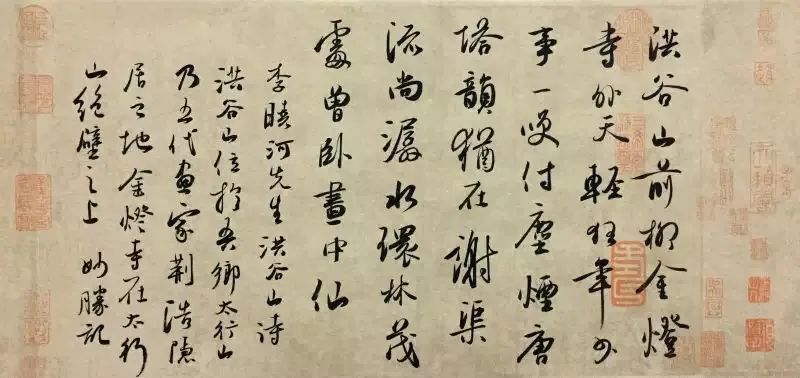 洪谷山前柳金燈
寺外天輕狂年少
事一笑付塵煙唐
塔韻猶在謝渠
流尚潺水環林茂
處曾臥畫中仙
李曉河先生洪谷山詩
洪谷山位於吾鄉太行山
乃五代畫家荆浩隱
居之地金燈寺在太行
山絕壁之上 妙勝記